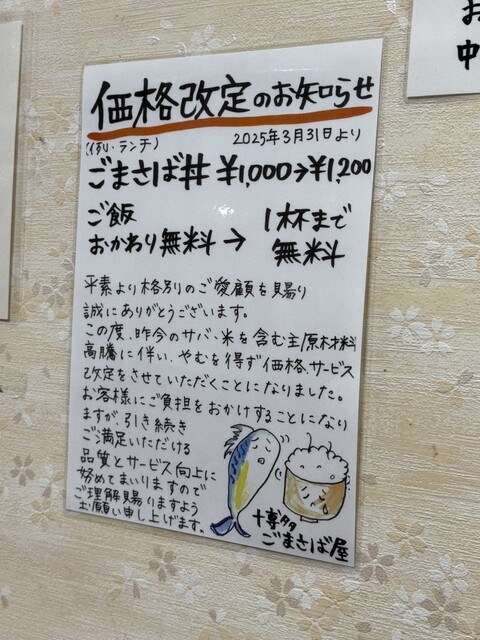 価格改定のお知らせ
2025年3月31日より
(例・ランチ)
ごまさば丼 ¥1,000→¥1,200
ご飯
おかわり無料 → 1杯まで
無料
平素より格別のご愛顧を賜り
誠にありがとうございます。
この度、昨今のサバ・米を含む主原材料
高騰に伴い、やむを得ず価格、サービス
改定をさせていただくことになりました。
お客様にご負担をおかけすることになり
ますが、引き続き
ご満足いただける
品質とサービス向上に
努めてまいりますので
ご理解賜りますよう
お願い申し上げます。
博多
ごまさば屋
お
中